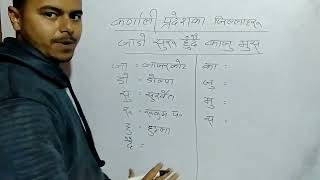 कर्णाली प्रदेशका जिल्लाहरू
जाडो सुरु हुँदै काजु मुस
जा = जाजरकोट
डो = डोल्पा
सु = सुर्खेत
रु = रूकुम प०
हु = हुम्ला
दै =
का =
जु =
मु =
स =